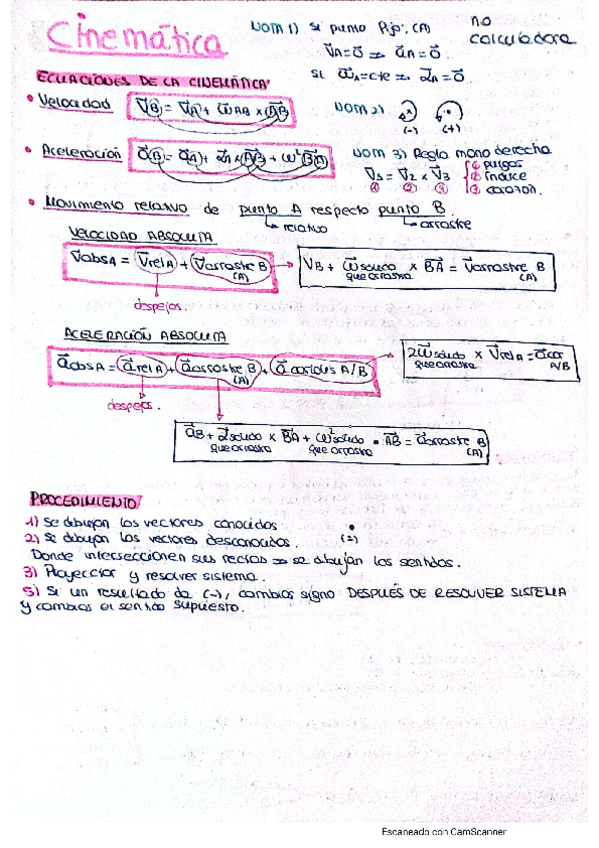 Cinemática
NOTA 1) Si punto fijo: (A)
V⃗A = 0⃗ => a⃗A = 0⃗
Si ω⃗A = cte => α⃗A = 0⃗
no
calculadora
ECUACIONES DE LA CINEMÁTICA
• Velocidad V⃗B = V⃗A + ω⃗AB × A⃗B
NOTA 2) (-) (+)
• Aceleración a⃗B = a⃗A + α⃗A × A⃗B + ω² B⃗A
NOTA 3) Regla mano derecha
V⃗1 = V⃗2 × V⃗3
① ② ③
① pulgar
② índice
③ corazón.
• Movimiento relativo de punto A respecto punto B.
relativo
arrastre
VELOCIDAD ABSOLUTA
V⃗absA = V⃗relA + V⃗arrastre B (A)
V⃗B + ω⃗sólido que arrastra × B⃗A = V⃗arrastre B (A)
despejas.
ACELERACIÓN ABSOLUTA
a⃗absA = a⃗relA + a⃗arrastre B (A) + a⃗coriolis A/B
2ω⃗sólido que arrastra × V⃗relA = a⃗cor A/B
despejas.
a⃗B + α⃗sólido que arrastra × B⃗A + ω²sólido que arrastra • A⃗B = a⃗arrastre B (A)
PROCEDIMIENTO
1) Se dibujan los vectores conocidos.
2) Se dibujan los vectores desconocidos.
Donde interseccionen sus rectas => se dibujan los sentidos.
3) Proyectar y resolver sistema.
5) Si un resultado da (-), cambias signo DESPUÉS DE RESOLVER SISTEMA
y cambias el sentido supuesto.
Escaneado con CamScanner